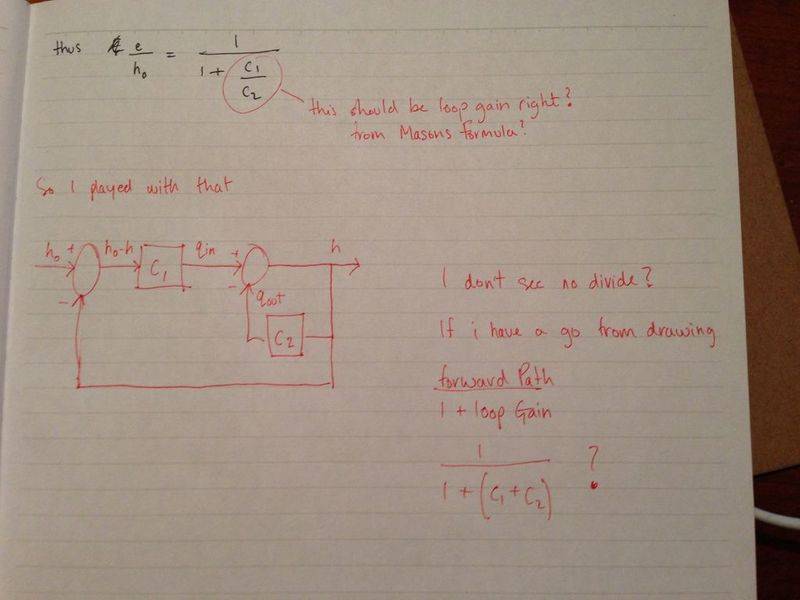 thus e/h₀ = 1/(1 + C₁/C₂)
this should be loop gain right?
from Masons formula?
So I played with that
h₀ + h₀-h C₁ qin + h
- - qout
C₂
I dont see no divide?
If i have a go from drawing
forward Path
1 + loop Gain
1/(1 + (C₁ + C₂)) ?